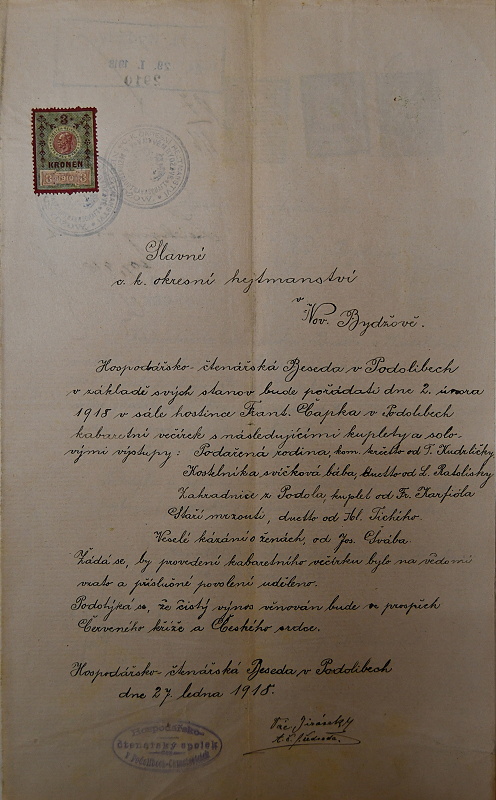 28. I. 1918
2910
3
KRONEN
Slavné
c. k. okresní hejtmanství
v
Nov. Bydžově.
Hospodářsko-čtenářská Beseda v Podolibech
v základě svých stanov bude pořádati dne 2. února
1918 v sále hostince Frant. Čapka v Podolibech
kabaretní večírek s následujícími kuplety a solo-
vými výstupy: Podařená rodina, kom. kvarteto od T. Kudrličky,
Kostelníka svíčková bába, duetto od L.
Zahradnice z Podola, kuplet od Fr. Karfióla
Staří mrzouti, duetto od Al. Tichého.
Veselé kázání o ženách, od Jos. Švába.
Žádá se, by provedení kabaretního večírku bylo na vědomí
vzato a příslušné povolení uděleno.
Podotýká se, že čistý výnos věnován bude ve prospěch
Červeného kříže a Českého srdce.
Hospodářsko-čtenářská Beseda v Podolibech
dne 27. ledna 1918.
Hospodářsko-
čtenářský spolek
v Podolibech